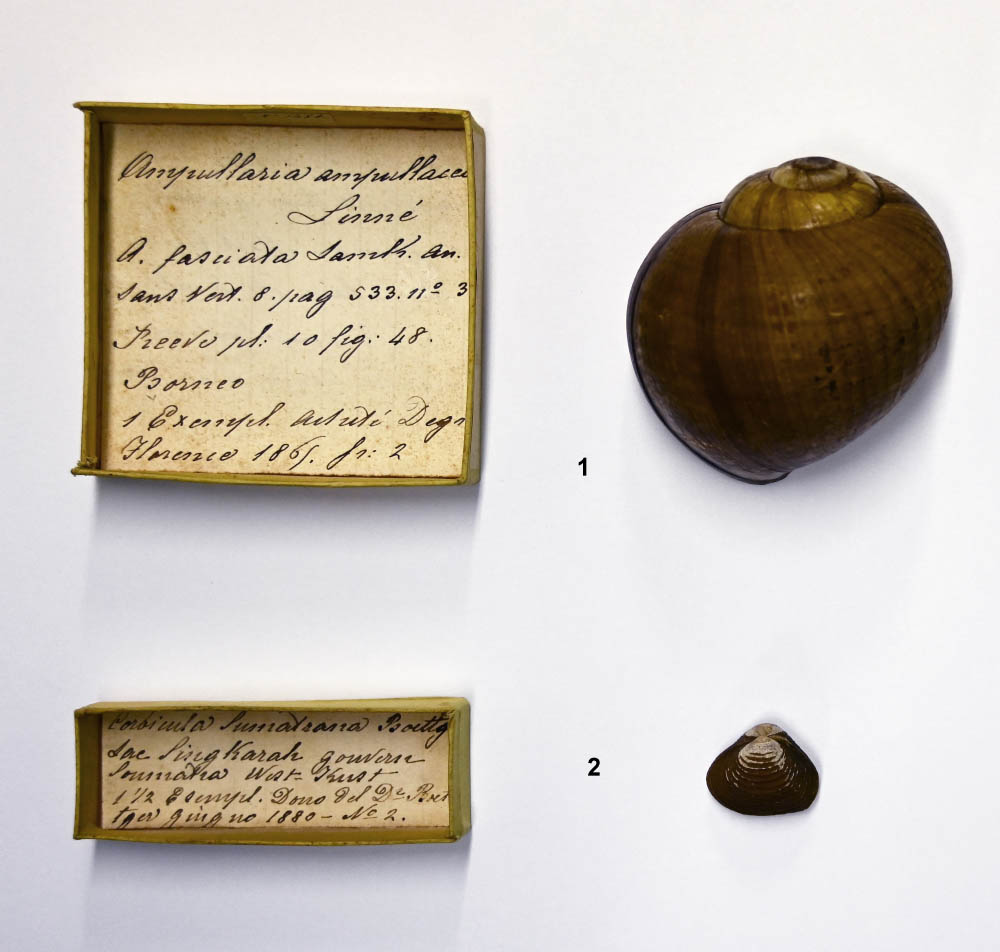 Ampullaria ampullacea
Linné
A. fasciata Lamk. an.
sans Vert. 8. pag 533. nº 3
Reeve pl: 10 fig: 48.
Borneo
1 Exempl.
Florence 186 fr: 2
1
Corbicula Sumatrana Boettg
Lac Singkarah gouvern
Soumatra West Kust
1 1/2 Esempl. Dono del Dr. Boet
tger giugno 1880 - No 2.
2